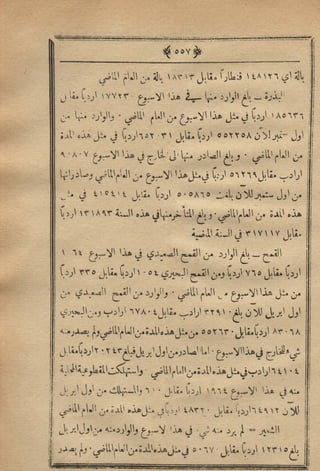 ﴿٥٥٧﴾
بالة اي ١٤٨١٢٦ قنطاراً مقابل ١٨٣١٣ بالة من العام الماضي
البذرة — بلغ الوارد منها في هذا الاسبوع ١٧٧٢٣٠ اردبًا مقابل
١٨٥٦٣٦ اردبًا في مثل هذا الاسبوع من العام الماضي · والوارد منها من
اول ستمبر للآن ٥٥٢٢٥٨ اردبًا مقابل ٦٥٢٠٣١ اردبًا في مثل هذه المدة
من العام الماضي · وبلغ الصادر منها الى الخارج في هذا الاسبوع ٩٠٨٠٧
ارادب مقابل ٥٦٢٦٩ اردبًا في مثل هذا الاسبوع من العام الماضي وصادراتها
من اول ستمبر للآن بلغت ٥٠٥٨٦٥ اردبًا مقابل ٤١٥٤١٤ في مثل
هذه المدة من العام الماضي · وبلغ المتأخر منها في هذه السنة ١٣١٨٩٣ اردبًا
مقابل ٣١٧١١٧ في السنة الماضية
القمح — بلغ الوارد من القمح الصعيدي في هذا الاسبوع ١٠٦٤
اردبًا مقابل ٧٦٥ اردبًا ومن القمح البحيري ١٠٥٤ اردبًا مقابل ٣٣٥ اردبًا
من مثل هذا الاسبوع من العام الماضي · والوارد من القمح الصعيدي من
اول ابريل للآن بلغ ٣٢٩١٠ اردبًا مقابل ٦٧٨٠٤ ارادب ومن البحيري
٨٣٠٦٨ اردبًا مقابل ٥٥٢٦٣٠ من مثل هذه المدة من العام الماضي ولم يصدر منه
شيء للخارج في هذا الاسبوع · اما الصادر من اول ابريل فبلغ ٢٠٢٤٣ اردبًا مقابل
٦٤١٠٤ ارادب في مثل هذه المدة من العام الماضي · واستهلكت المقطوعية المحلية
منه في هذا الاسبوع ١٩٦٤ اردبًا مقابل ٦١٠ والمستهلك من اول ابريل
للآن ٦٤٩١٢ اردبًا مقابل ٤٨٣٢٠ اردبًا في مثل هذه المدة من العام الماضي
الشعير = لم يرد منه شيء في هذا الاسبوع والوارد منه من اول ابريل
بلغ ١٢٣١٥ اردبًا مقابل ٥٠٦٧ في مثل هذه المدة من العام الماضي · ولم يصدر